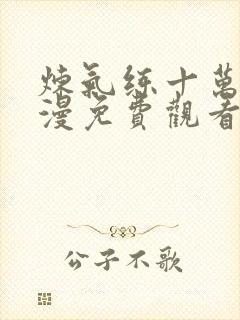 煉氣練十萬
漫免費觀看
公子不歌